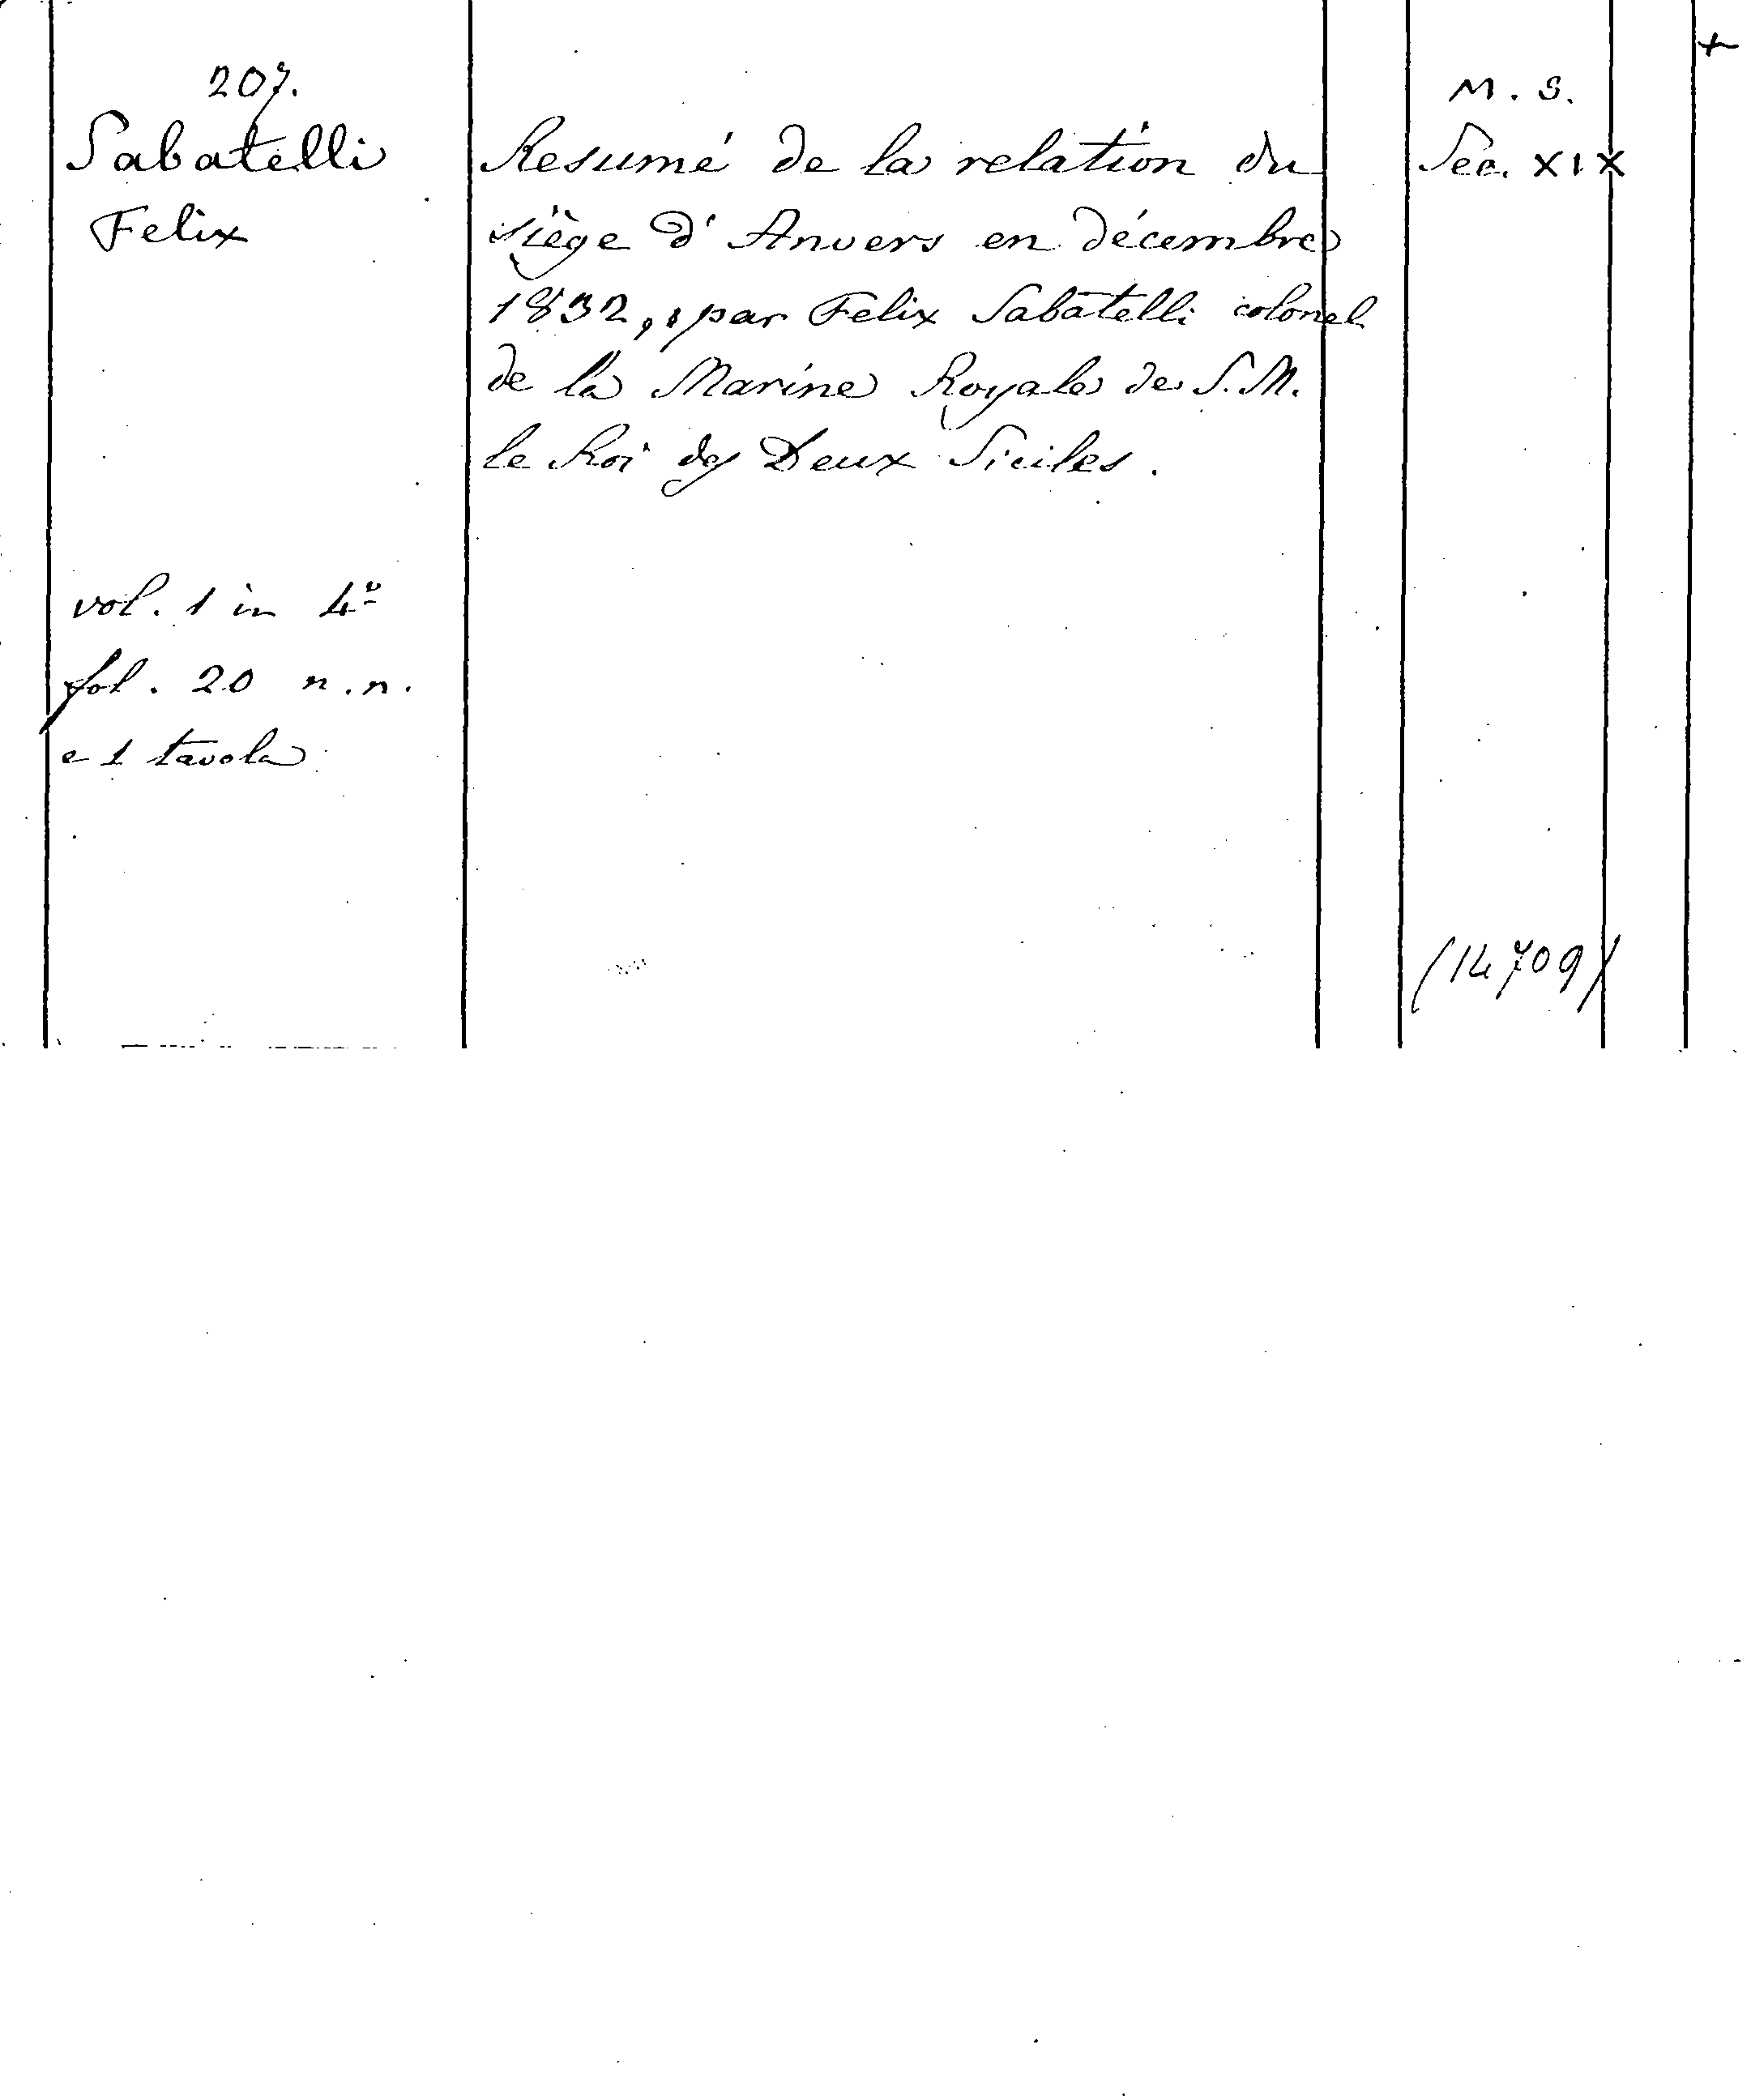 207.
Sabatelli
Felix
vol. 1 in 4º
fol. 20 n.n.
e 1 tavola
Resumé de la relation du
siège d'Anvers en décembre
1832, par Felix Sabatelli colonel
de la Marine Royale de S.M.
le Roi des Deux Siciles.
M.S.
Sec. XIX
(14709)
+